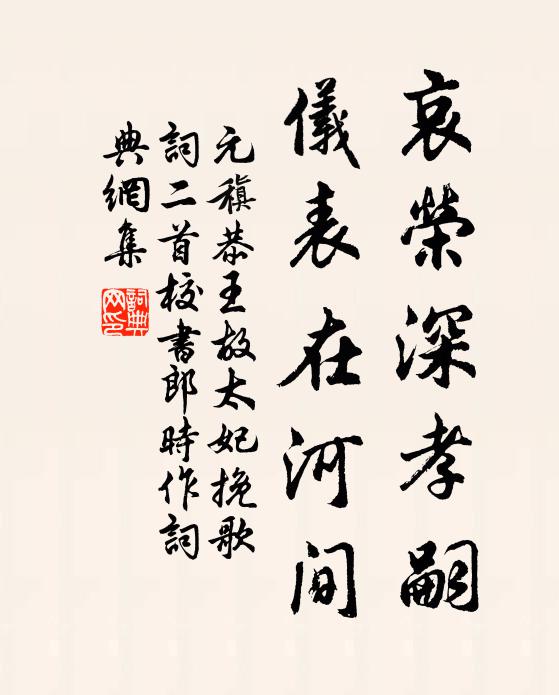 哀榮深孝嗣
儀表在河間
元稹恭王故太妃挽歌
詞二首校書郎時作詞
典網集
詞典網印